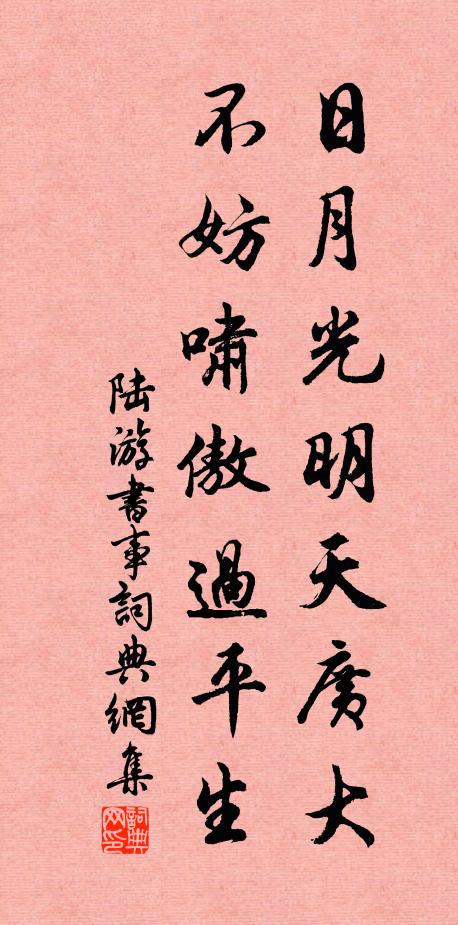 日月光明天廣大
不妨嘯傲過平生
陆游書事詞典網集
詞典網印